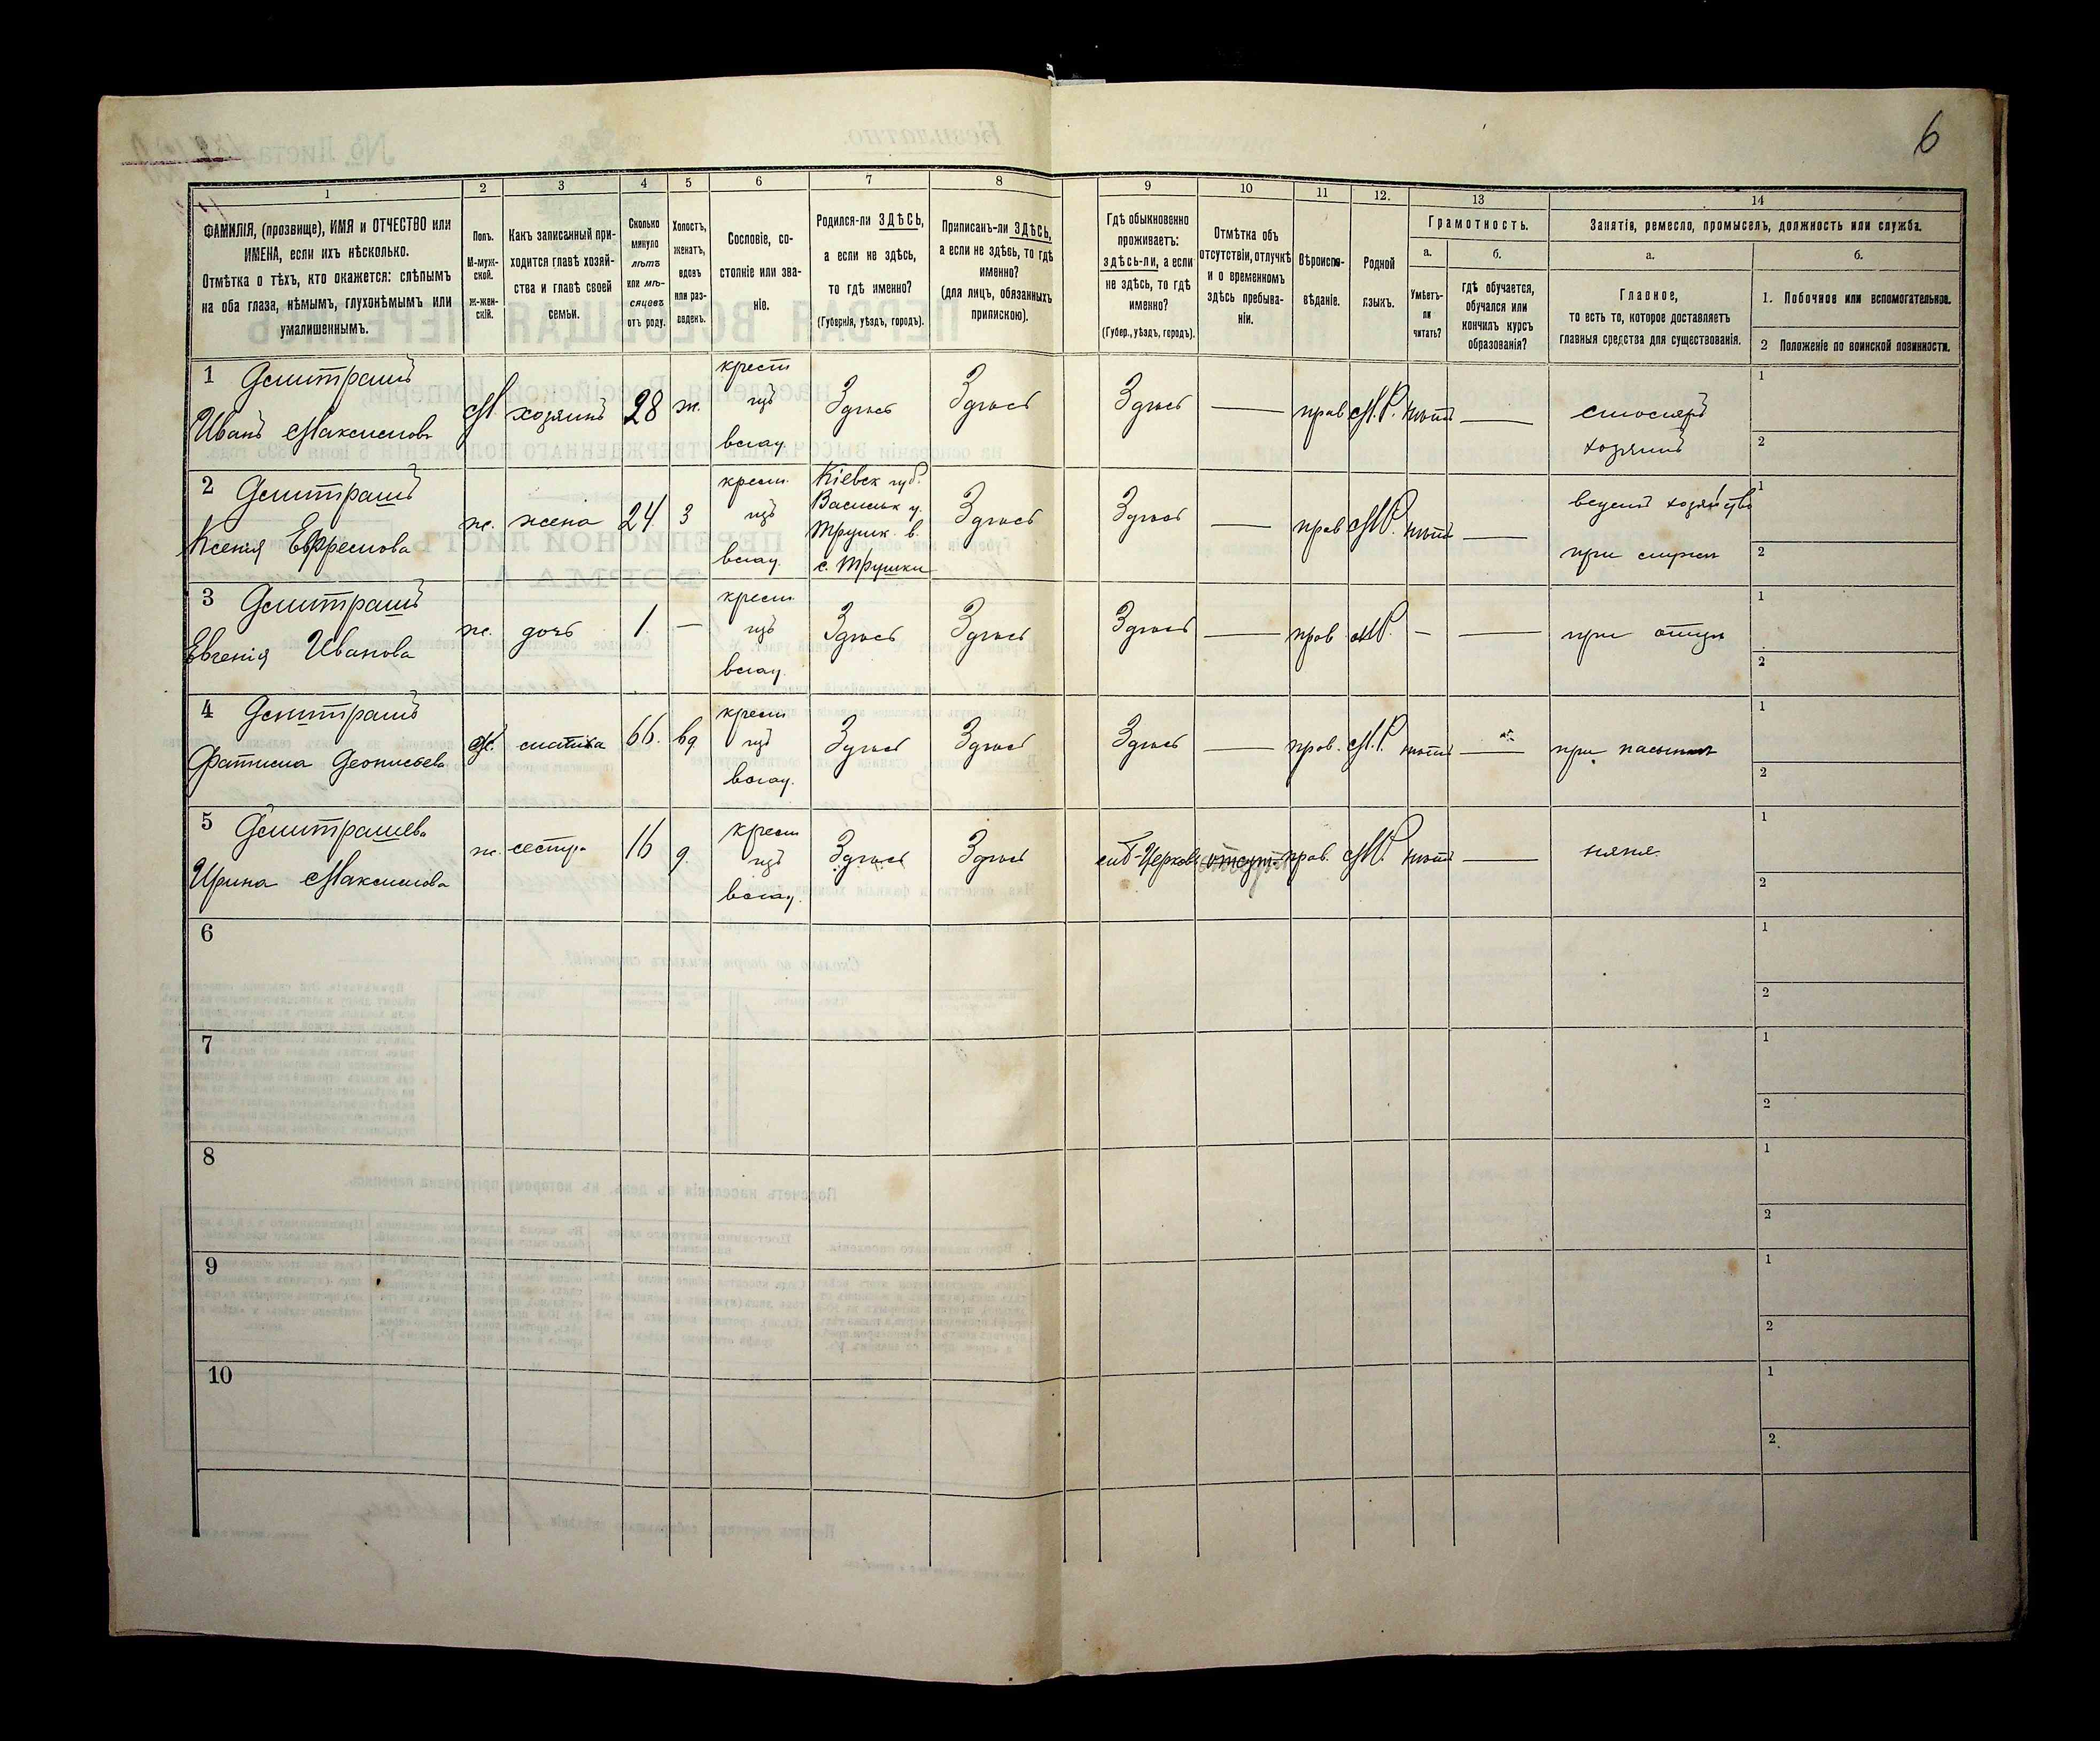 6
1 2 3 4 5 6 7 8 9 10 11 12. 13 14
ФАМИЛІЯ, (прозвище), ИМЯ и ОТЧЕСТВО или
ИМЕНА, если ихъ нѣсколько.
Отмѣтка о тѣхъ, кто окажется: слѣпымъ
на оба глаза, нѣмымъ, глухонѣмымъ или
умалишеннымъ.
Полъ.
М-муж-
ской.
Ж-жен-
скій.
Какъ записанный при-
ходится главѣ хозяй-
ства и главѣ своей
семьи.
Сколько
минуло
лѣтъ
или мѣ-
сяцевъ
отъ роду.
Холостъ,
женатъ,
вдовъ
или раз-
веденъ.
Сословіе, со-
стояніе или зва-
ніе.
Родился-ли ЗДѢСЬ,
а если не здѣсь,
то гдѣ именно?
(Губернія, уѣздъ, городъ).
Приписанъ-ли ЗДѢСЬ,
а если не здѣсь, то гдѣ
именно?
(для лицъ, обязанныхъ
припискою).
Гдѣ обыкновенно
проживаетъ:
здѣсь-ли, а если
не здѣсь, то гдѣ
именно?
(Губер., уѣздъ, городъ).
Отмѣтка объ
отсутствіи, отлучкѣ
и о временномъ
здѣсь пребыва-
ніи.
Вѣроиспо-
вѣданіе.
Родной
языкъ.
Грамотность.
а.
Умѣетъ-
ли
читать?
б.
гдѣ обучается,
обучался или
кончилъ курсъ
образованія?
Занятія, ремесло, промыселъ, должность или служба.
а.
Главное,
то есть то, которое доставляетъ
главныя средства для существованія.
б.
1. Побочное или вспомогательное.
2 Положеніе по воинской повинности.
1 Демитрашъ
Иванъ Максимовъ
М хозяинъ 28 ж.
крест
изъ
Здѣсь Здѣсь Здѣсь — прав М.Р. нѣтъ —
хозяинъ
1
2
2 Демитрашъ
Ксенія Ефремова
ж. жена 24 З
крест.
изъ
Кіевск губ.
Васильк у.
Трушк. в.
с. Трушки
Здѣсь Здѣсь — прав М.Р. нѣтъ —
ведетъ хозяйство
при
1
2
3 Демитрашъ
Евгенія Иванова
ж. дочь 1. —
крест.
изъ
Здѣсь Здѣсь Здѣсь — прав М.Р. — —
при отцѣ
1
2
4 Демитрашъ
Ж. 66. вд.
крест
изъ
Здѣсь Здѣсь Здѣсь — прав. М.Р. нѣтъ —
при пасынкѣ
1
2
5 Демитрашева
Ирина Максимова
ж. сестра 16 д.
крест
изъ
Здѣсь Здѣсь Церковь отсут. прав. М.Р. нѣтъ —
няня.
1
2
6
1
2
7
1
2
8
1
2
9
1
2
10
1
2